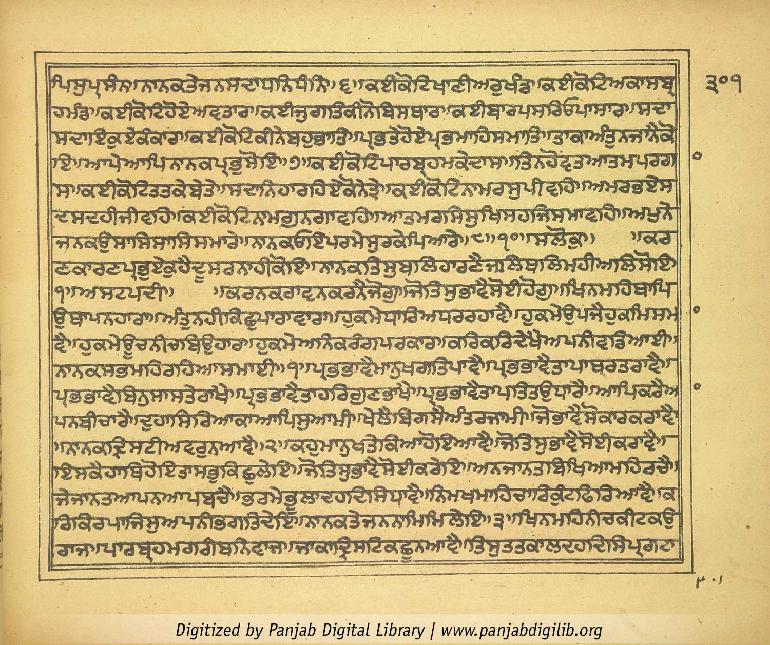 ਪਿਸੁਪ੍ਰਸੰਨਿ॥ਨਾਨਕਤੇਜਨਸਦਾਧਨਿਧੰਨਿ॥੬॥ਕਈਕੋਟਿਖਾਣੀਅਰੁਖੰਡ॥ਕਈਕੋਟਿਅਕਾਸਬ੍ਰ
ਹਮੰਡ॥ਕਈਕੋਟਿਹੋਏਅਵਤਾਰ॥ਕਈਜੁਗਤਿਕੀਨੋਬਿਸਥਾਰ॥ਕਈਬਾਰਪਸਰਿਓਪਾਸਾਰ॥ਸਦਾ
ਸਦਾਇਕੁਏਕੰਕਾਰ॥ਕਈਕੋਟਿਕੀਨੇਬਹੁਭਾਤਿ॥ਪ੍ਰਭਤੇਹੋਏਪ੍ਰਭਮਾਹਿਸਮਾਤਿ॥ਤਾਕਾਅੰਤੁਨਜਾਨੈਕੋ
ਇ॥ਆਪੇਆਪਿਨਾਨਕਪ੍ਰਭੁਸੋਇ॥੭॥ਕਈਕੋਟਿਪਾਰਬ੍ਰਹਮਕੇਦਾਸ॥ਤਿਨਹੋਵਤਆਤਮਪਰਗਾ
ਸ॥ਕਈਕੋਟਿਤਤਕੇਬੇਤੇ॥ਸਦਾਨਿਹਾਰਹਿਏਕੋਨੇਤ੍ਰੇ॥ਕਈਕੋਟਿਨਾਮਰਸੁਪੀਵਹਿ॥ਅਮਰਭਏਸ
ਦਸਦਹੀਜੀਵਹਿ॥ਕਈਕੋਟਿਨਾਮਗੁਨਗਾਵਹਿ॥ਆਤਮਰਸਿਸੁਖਿਸਹਜਿਸਮਾਵਹਿ॥ਅਪੁਨੇ
ਜਨਕਉਸਾਸਿਸਾਸਿਸਮਾਰੇ॥ਨਾਨਕਓਇਪਰਮੇਸੁਰਕੇਪਿਆਰੇ॥੮॥੧੦॥ਸਲੋਕੁ॥ ॥ਕਰ
ਣਕਾਰਣਪ੍ਰਭੁਏਕੁਹੈਦੂਸਰਨਾਹੀਕੋਇ॥ਨਾਨਕਤਿਸੁਬਲਿਹਾਰਣੈਜਲਿਥਲਿਮਹੀਅਲਿਸੋਇ॥
੧॥ਅਸਟਪਦੀ॥ ॥ਕਰਨਕਰਾਵਨਕਰਨੈਜੋਗੁ॥ਜੋਤਿਸੁਭਾਵੈਸੋਈਹੋਗੁ॥ਖਿਨਮਹਿਥਾਪਿ
ਉਥਾਪਨਹਾਰਾ॥ਅੰਤੁਨਹੀਕਿਛੁਪਾਰਾਵਾਰਾ॥ਹੁਕਮੇਧਾਰਿਅਧਰਰਹਾਵੈ॥ਹੁਕਮੇਉਪਜੈਹੁਕਮਿਸਮਾ
ਵੈ॥ਹੁਕਮੇਊਚਨੀਚਬਿਉਹਾਰ॥ਹੁਕਮੇਅਨਿਕਰੰਗਪਰਕਾਰ॥ਕਰਿਕਰਿਦੇਖੈਅਪਨੀਵਡਿਆਈ॥
ਨਾਨਕਸਭਮਹਿਰਹਿਆਸਮਾਈ॥੧॥ਪ੍ਰਭਭਾਵੈਮਾਨੁਖਗਤਿਪਾਵੈ॥ਪ੍ਰਭਭਾਵੈਤਾਪਾਥਰਤਰਾਵੈ॥
ਪ੍ਰਭਭਾਵੈਬਿਨੁਸਾਸਤੇਰਾਖੈ॥ਪ੍ਰਭਭਾਵੈਤਾਹਰਿਗੁਣਭਾਖੈ॥ਪ੍ਰਭਭਾਵੈਤਾਪਤਿਤਉਧਾਰੈ॥ਆਪਿਕਰੈਆ
ਪਨਬੀਚਾਰੈ॥ਦੁਹਾਸਿਰਿਆਕਾਆਪਿਸੁਆਮੀ॥ਖੇਲੈਬਿਗਸੈਅੰਤਰਜਾਮੀ॥ਜੋਭਾਵੈਸੋਕਾਰਕਰਾਵੈ
॥ਨਾਨਕਦ੍ਰਿਸਟੀਅਵਰੁਨਆਵੈ॥੨॥ਕਹੁਮਾਨੁਖਤੇਕਿਆਹੋਇਆਵੈ॥ਜੋਤਿਸੁਭਾਵੈਸੋਈਕਰਾਵੈ॥
ਇਸਕੈਹਾਥਿਹੋਇਤਾਸਭੁਕਿਛੁਲੇਇ॥ਜੋਤਿਸੁਭਾਵੈਸੋਈਕਰੇਇ॥ਅਨਜਾਨਤਬਿਖਿਆਮਹਿਰਚੈ॥
ਜੇਜਾਨਤਆਪਨਆਪਬਚੈ॥ਭਰਮੇਭੂਲਾਦਹਦਿਸਿਧਾਵੈ॥ਨਿਮਖਮਾਹਿਚਾਰਿਕੁੰਟਫਿਰਿਆਵੈ॥ਕ
ਰਿਕਿਰਪਾਜਿਸੁਅਪਨੀਭਗਤਿਦੇਇ॥ਨਾਨਕਤੇਜਨਨਾਮਿਮਿਲੇਇ॥੩॥ਖਿਨਮਹਿਨੀਚਕੀਟਕਉ
ਰਾਜ॥ਪਾਰਬ੍ਰਹਮਗਰੀਬਨਿਵਾਜ॥ਜਾਕਾਦ੍ਰਿਸਟਿਕਛੂਨਆਵੈ॥ਤਿਸੁਤਤਕਾਲਦਹਦਿਸਿਪ੍ਰਗਟਾ
੩੦੧
੩੦੧
Digitized by Panjab Digital Library | www.panjabdigilib.org